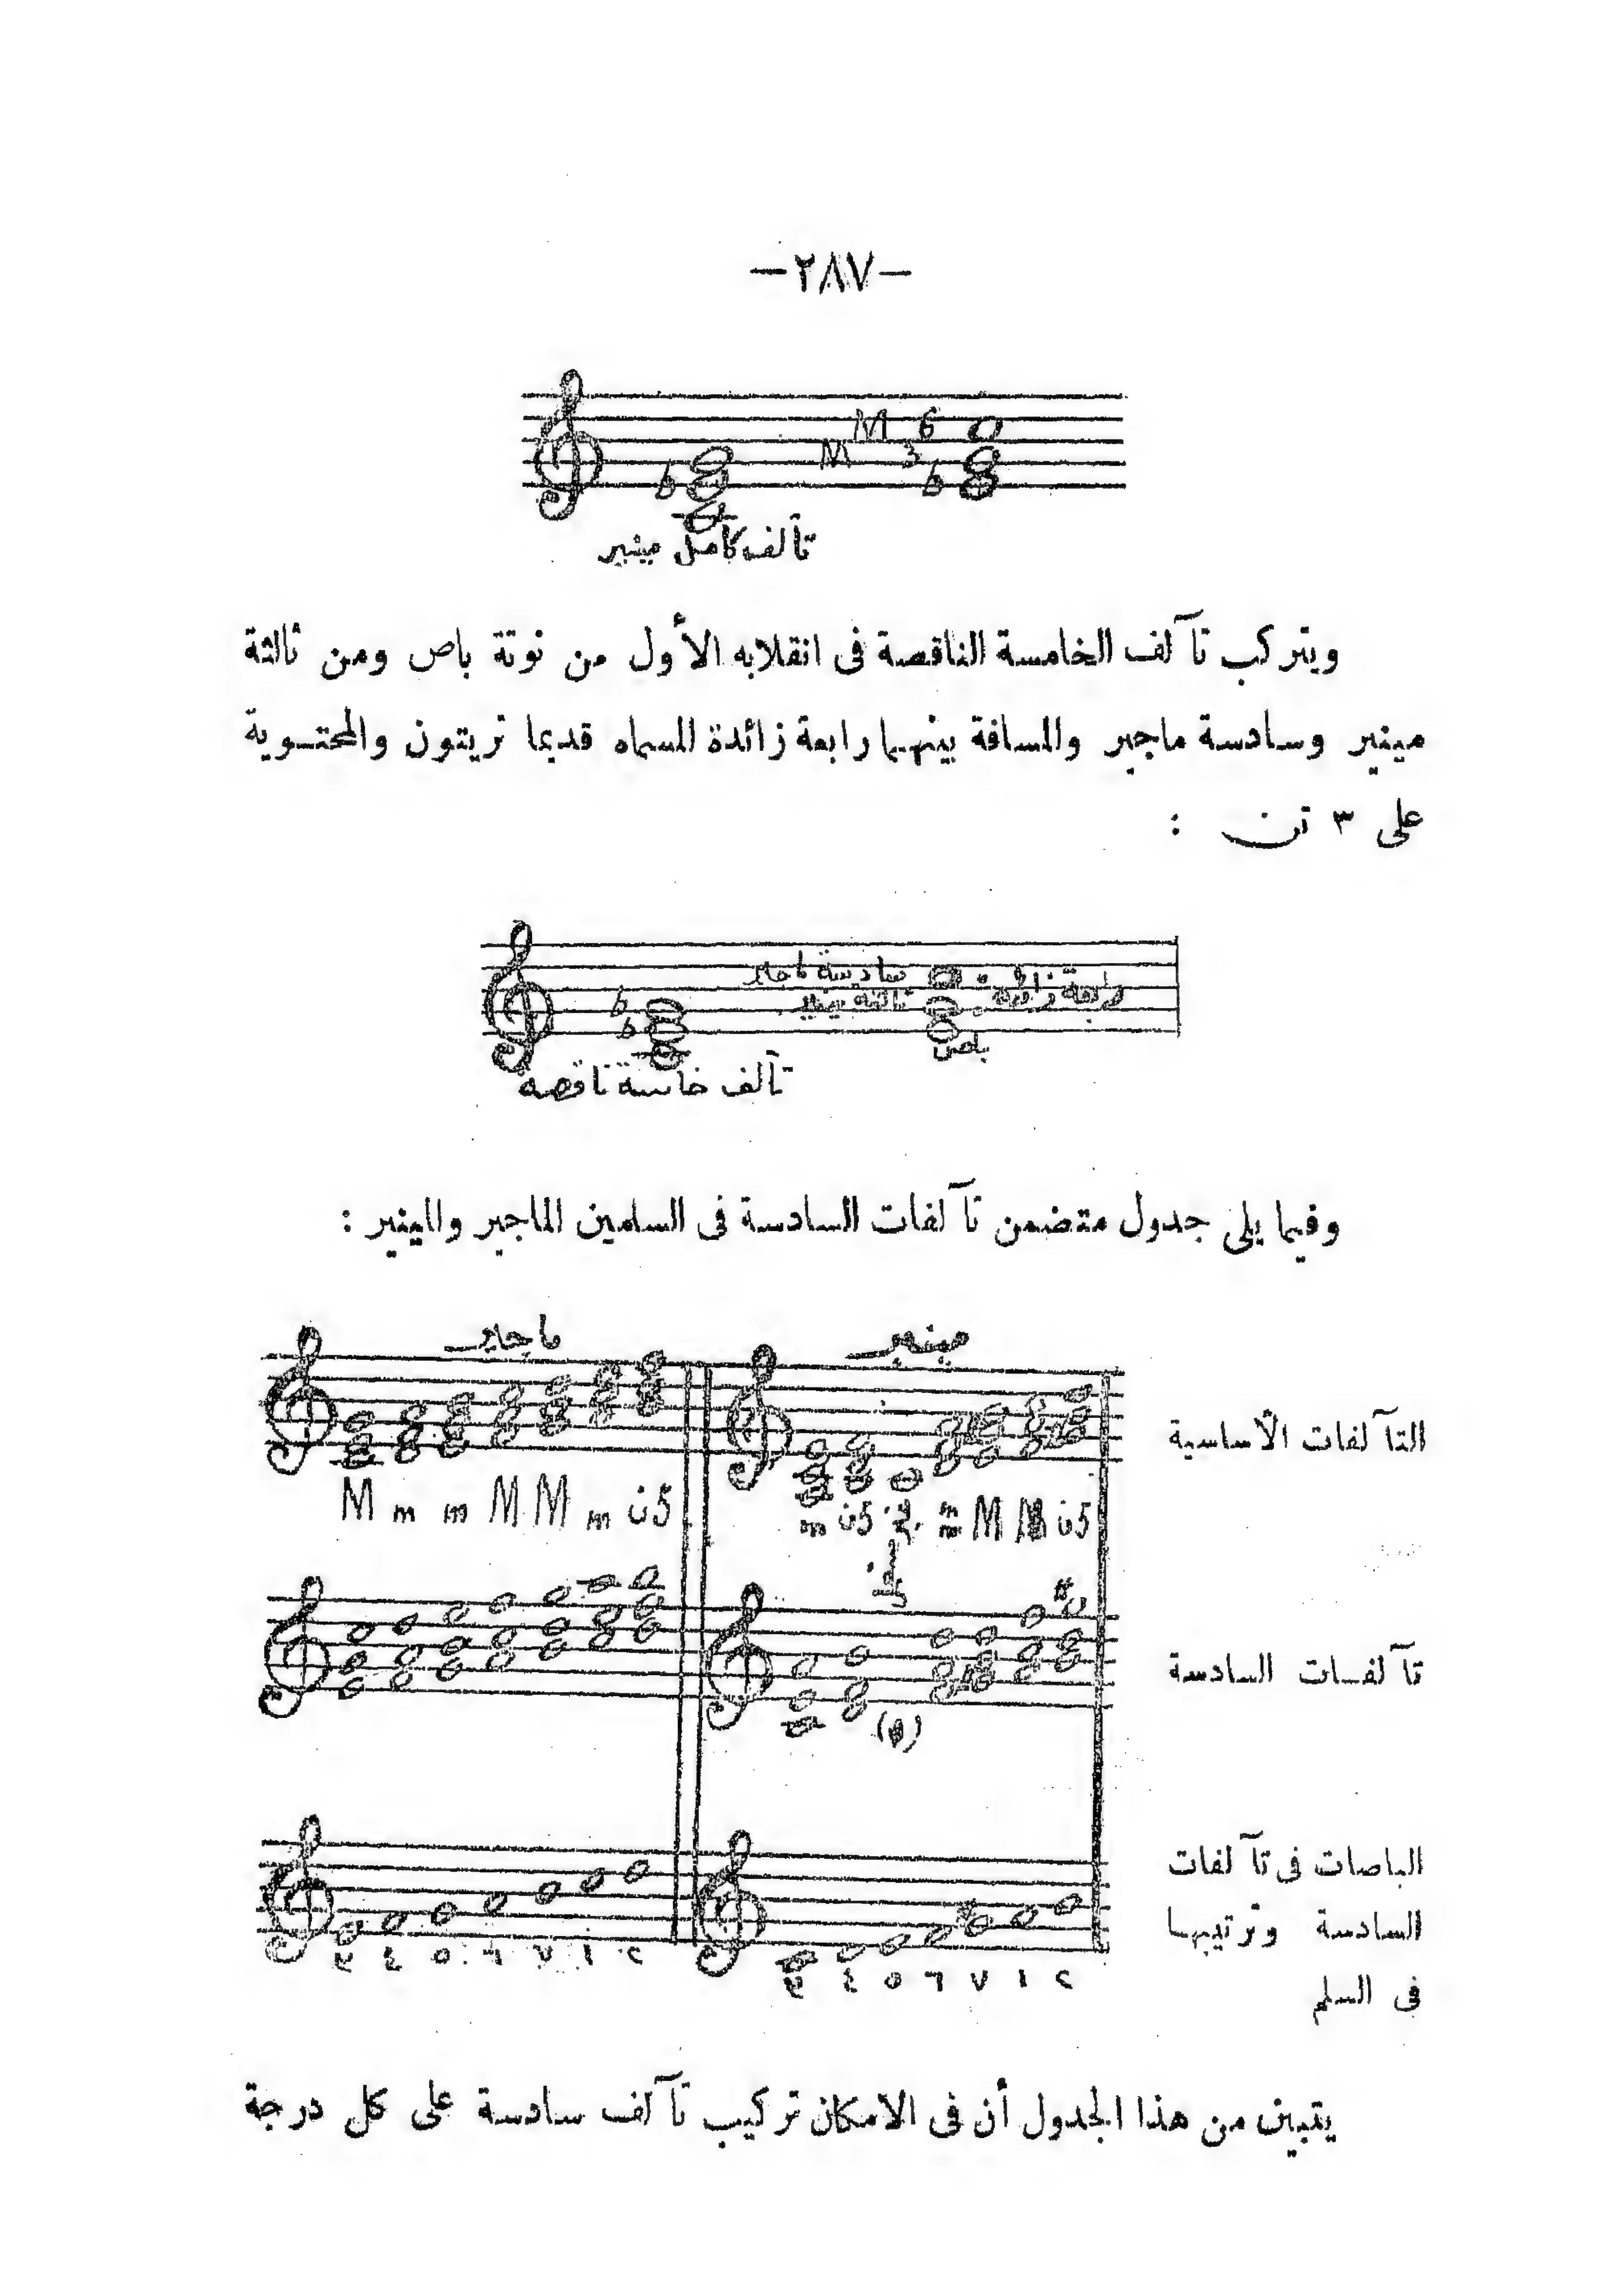 -٢٨٧-
M 6
M 3
تآلف كامل مينير
ويتركب تآلف الخامسة الناقصة فى انقلابه الأول من نوتة باص ومن ثالثة
مينير وسادسة ماجير والمسافة بينهما رابعة زائدة المسماه قديما تريتون والمحتوية
على ٣ تن :
سادسة ماجير
ثالثة مينير
رابعة زائدة
باص
تآلف خامسة ناقصة
وفيما يلى جدول متضمن تآلفات السادسة فى السلمين الماجير والمينير :
ماجير مينير
التآلفات الأساسية
M m m M M m ن5
m ن5 m M M ن5
تآلفات السادسة
الباصات فى تآلفات
السادسة وترتيبها
فى السلم
٣ ٤ ٥ ٦ ٧ ١ ٢
٣ ٤ ٥ ٦ ٧ ١ ٢
يتبين من هذا الجدول أن فى الامكان تركيب تآلف سادسة على كل درجة